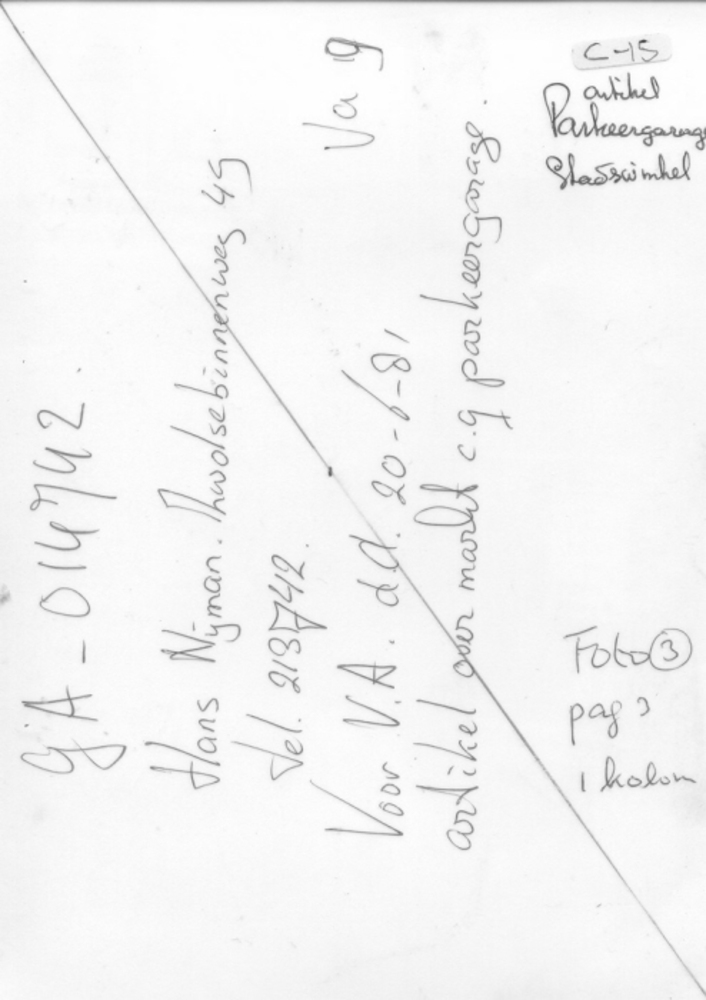 C-15
artikel
Parkeergarage
Stadswinkel
Foto ③
pag 3
1 kolom
Va 9
gA-014742.
Hans Nijman. Zwolsebinnenweg 45
tel. 213742.
Voor V.A. d.d. 20-6-81
artikel over markt c.q parkeergarage.